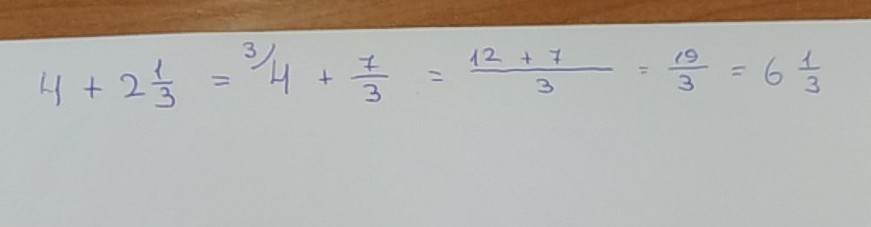 4 + 2 1/3 = ³/4 + 7/3 = (12 + 7)/3 = 19/3 = 6 1/3